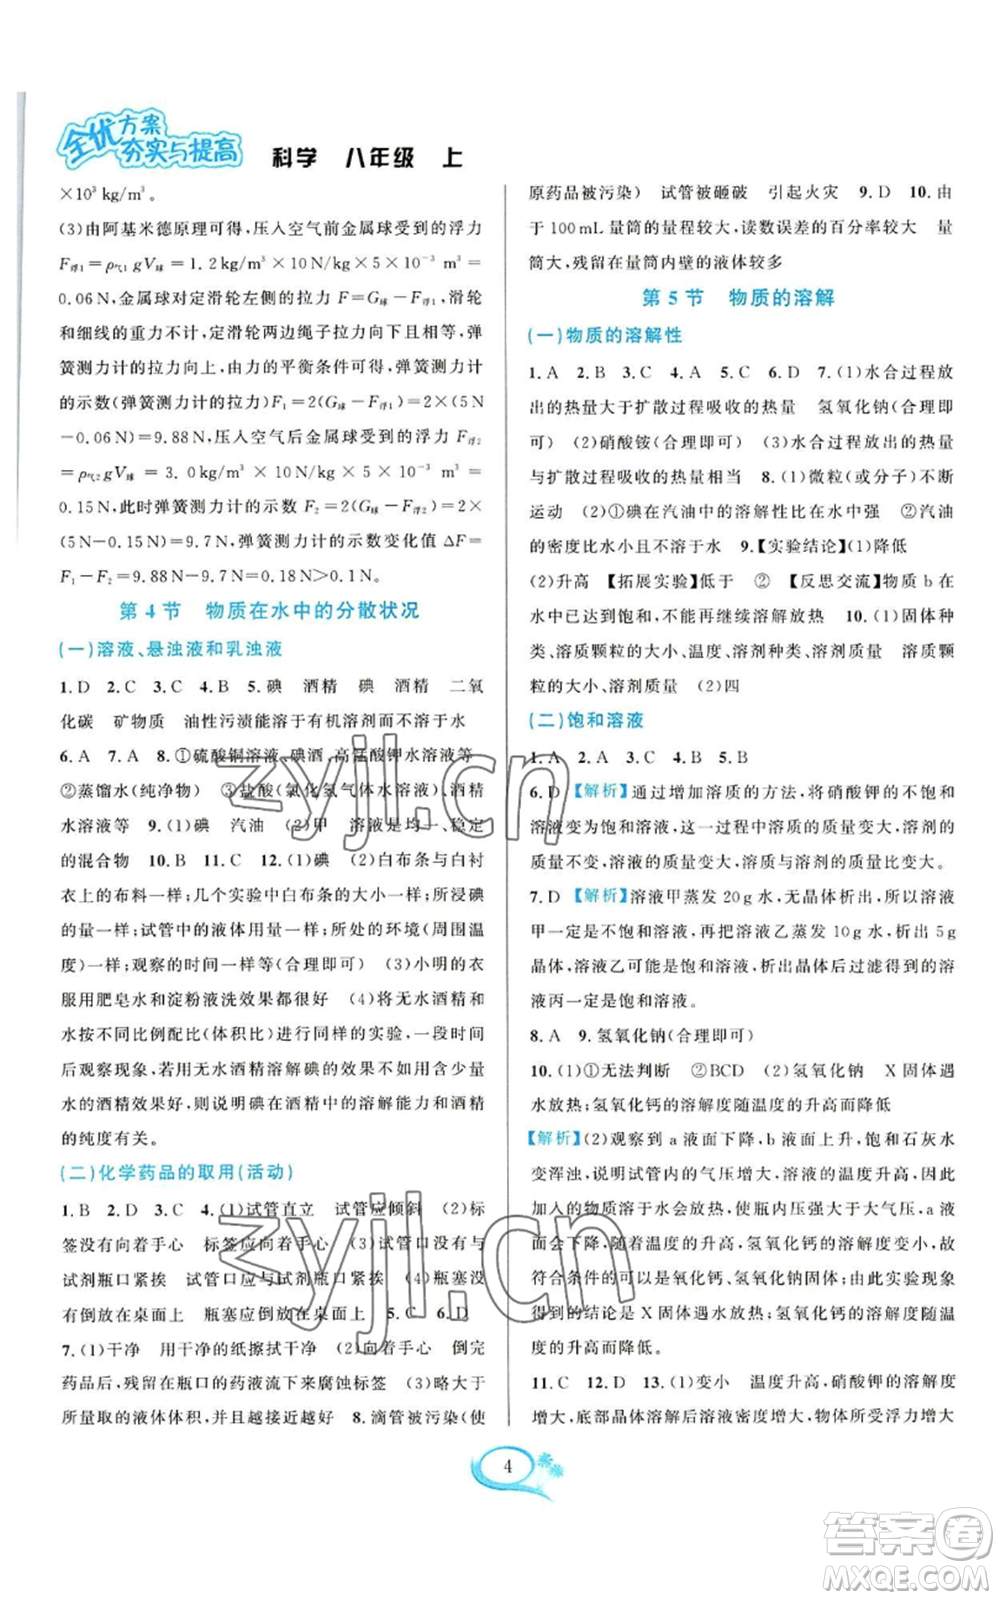 全优方案
夯实与提高
科学 八年级 上
×10³ kg/m³。
(3)由阿基米德原理可得,压入空气前金属球受到的浮力
F浮1=ρ气1gV球=1.2kg/m³×10 N/kg×5×10⁻³ m³=
0.06N,金属球对定滑轮左侧的拉力 F=G球-F浮1,滑轮
和细线的重力不计,定滑轮两边绳子拉力大小相等,弹
簧测力计的拉力向上,由力的平衡条件可得,弹簧测力计
的示数(弹簧测力计的拉力)F1=2(G球-F浮1)=2×(5N
-0.06N)=9.88N,压入空气后金属球受到的浮力 F浮2
=ρ气2gV球=3.0kg/m³×10N/kg×5×10⁻³m³=
0.15N,此时弹簧测力计的示数 F2=2(G球-F浮2)=2×
(5N-0.15N)=9.7N,弹簧测力计的示数变化值 ΔF=
F1-F2=9.88N-9.7N=0.18N>0.1N。
第 4 节 物质在水中的分散状况
(一)溶液、悬浊液和乳浊液
1.D 2.C 3.C 4.B 5.碘 酒精 碘 酒精 二氧
化碳 矿物质 油性污渍能溶于有机溶剂而不溶于水
6.A 7.A 8.①硫酸铜溶液、碘酒、高锰酸钾水溶液等
②蒸馏水(纯净物) ③盐酸(氯化氢气体水溶液)、酒精
水溶液等 9.(1)碘 汽油 (2)甲 溶液是均一、稳定
的混合物 10.B 11.C 12.(1)碘 (2)白布条与白衬
衣上的布料一样;几个实验中白布条的大小、所沾的碘
的量一样;试管中的液体用量一样;所处的环境(周围温
度)一样;观察的时间一样等(合理即可) (3)小明的衣
服用肥皂水和淀粉液洗效果都很好 (4)将无水酒精和
水按不同比例配比(体积比)进行同样的实验,一段时间
后观察现象,若用无水酒精溶解碘的效果不如含少量
水的酒精效果好,则说明碘在酒精中的溶解能力和酒精
的纯度有关。
(二)化学药品的取用(活动)
1.B 2.D 3.C 4.(1)试管直立 试管应倾斜 (2)标
签没有向着手心 标签应向着手心 (3)试管口没有与
试剂瓶口紧挨 试管口应与试剂瓶口紧挨 (4)瓶塞没
有倒放在桌面上 瓶塞应倒放在桌面上 5.C 6.D
7.(1)干净 用干净的纸擦拭干净 (2)向着手心 倾完
药品后,残留在瓶口的药液流下来腐蚀标签 (3)略大于
所量取的液体体积,且越接近越好 8.滴管被污染(使
原药品被污染) 试管被砸破 引起火灾 9.D 10.由
于100mL量筒的量程较大,读数误差的百分率较大 量
筒大,残留在量筒内壁的液体较多
第 5 节 物质的溶解
(一)物质的溶解性
1.A 2.B 3.C 4.A 5.C 6.D 7.(1)水合过程放
出的热量大于扩散过程吸收的热量 氢氧化钠(合理即
可) (2)硝酸铵(合理即可) (3)水合过程放出的热量
与扩散过程吸收的热量相当 8.(1)微粒(或分子)不断
运动 (2)①碘在汽油中的溶解性比在水中强 ②汽油
的密度比水小且不溶于水 9.【实验结论】(1)降低
(2)升高 【拓展实验】低于 ② 【反思交流】物质 b 在
水中已达到饱和,不能再继续溶解放热 10.(1)固体种
类、溶质颗粒的大小、温度、溶剂种类、溶剂质量 溶质颗
粒的大小、溶剂质量 (2)四
(二)饱和溶液
1.A 2.A 3.C 4.B 5.B
6.D 【解析】通过增加溶质的方法,将硝酸钾的不饱和
溶液变为饱和溶液,这一过程中溶质的质量变大,溶剂的
质量不变,溶液的质量变大,溶质与溶剂的质量比变大。
7.D 【解析】溶液甲蒸发20g水,无晶体析出,所以溶液
甲一定是不饱和溶液,再把溶液乙蒸发10g水,析出5g
晶体,溶液乙可能是饱和溶液,析出晶体后过滤得到的溶
液丙一定是饱和溶液。
8.A 9.氢氧化钠(合理即可)
10.(1)①无法判断 ②BCD (2)氢氧化钠 X固体遇
水放热;氢氧化钙的溶解度随温度的升高而降低
【解析】(2)观察到 a 液面下降,b 液面上升,饱和石灰水
变浑浊,说明试管内的气压增大,溶液的温度升高,因此
加入的物质溶于水会放热,使瓶内压强大于大气压,a液
面会下降,随着温度的升高,氢氧化钙的溶解度变小,故
符合条件的可以是氧化钙、氢氧化钠固体;由此实验现象
得到的结论是 X 固体遇水放热;氢氧化钙的溶解度随温
度的升高而降低。
11.C 12.D 13.(1)变小 温度升高,硝酸钾的溶解度
增大,底部晶体溶解后溶液密度增大,物体所受浮力增大
4
zyjl.cn
zyjl.cn
答案卷
MXQE.COM